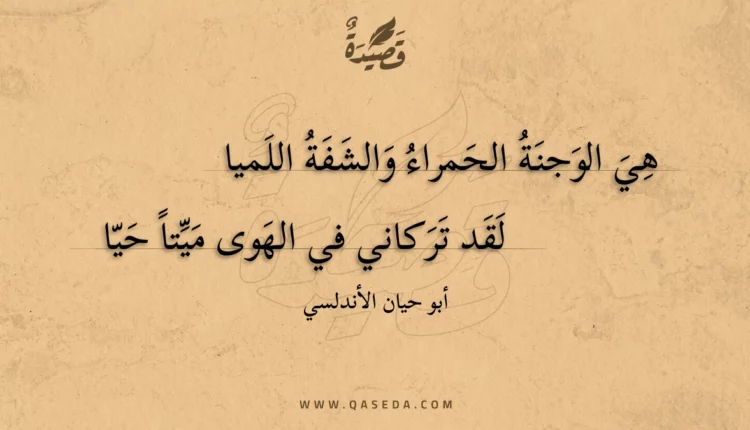 قَصِيْدَةٌ
هِيَ الوَجنَةُ الحَمراءُ وَالشَفَةُ اللَميا
لَقَد تَرَكاني في الهَوى مَيِّتاً حَيّا
أبو حيان الأندلسي
WWW.QASEDA.COM